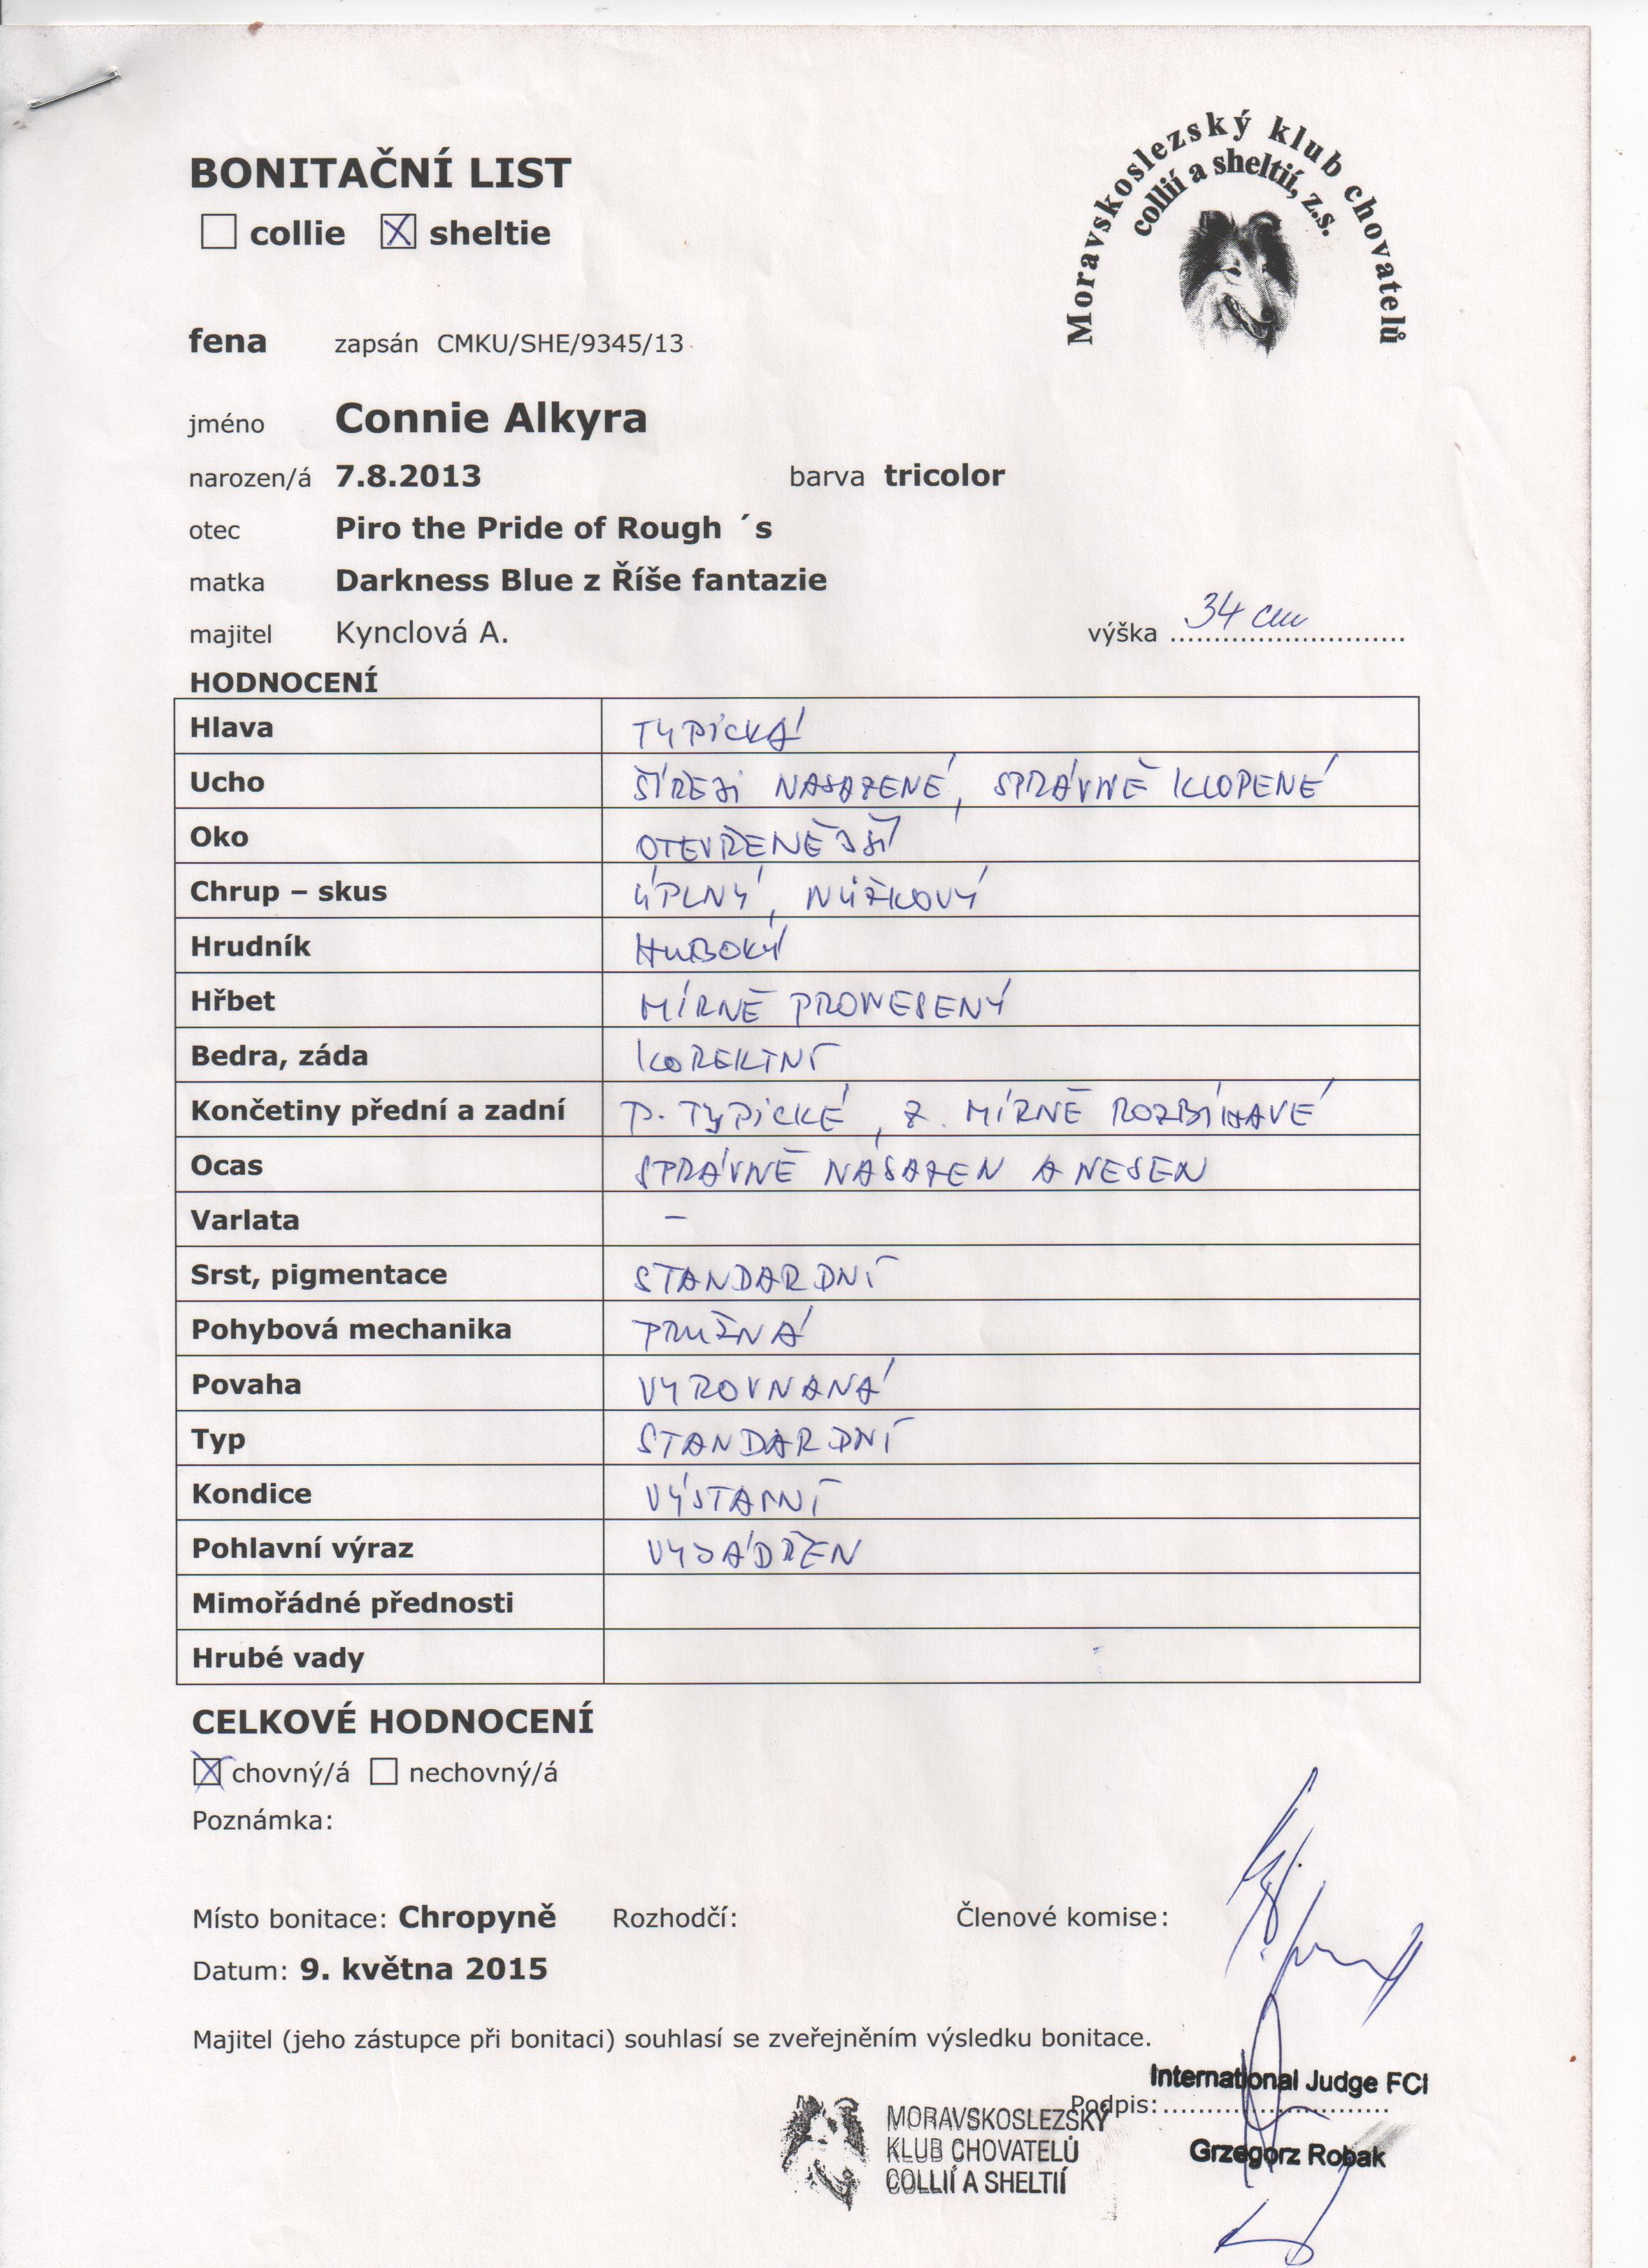 Moravskoslezský klub chovatelů
collií a sheltií, z.s.
BONITAČNÍ LIST
collie sheltie
fena zapsán CMKU/SHE/9345/13
jméno Connie Alkyra
narozen/á 7.8.2013 barva tricolor
otec Piro the Pride of Rough ´s
matka Darkness Blue z Říše fantazie
majitel Kynclová A. výška 34 cm
HODNOCENÍ
Hlava TYPICKÁ
Ucho ŠÍŘEJI NASAZENÉ, SPRÁVNĚ KLOPENÉ
Oko OTEVŘENĚJŠÍ
Chrup – skus ÚPLNÝ, NŮŽKOVÝ
Hrudník HLUBOKÝ
Hřbet MÍRNĚ PRONESENÝ
Bedra, záda KOREKTNÍ
Končetiny přední a zadní P. TYPICKÉ, Z. MÍRNĚ ROZBÍHAVÉ
Ocas SPRÁVNĚ NASAZEN A NESEN
Varlata –
Srst, pigmentace STANDARDNÍ
Pohybová mechanika PRUŽNÁ
Povaha VYROVNANÁ
Typ STANDARDNÍ
Kondice VÝSTAVNÍ
Pohlavní výraz VYJÁDŘEN
Mimořádné přednosti
Hrubé vady
CELKOVÉ HODNOCENÍ
chovný/á nechovný/á
Poznámka:
Místo bonitace: Chropyně Rozhodčí: Členové komise:
Datum: 9. května 2015
Majitel (jeho zástupce při bonitaci) souhlasí se zveřejněním výsledku bonitace.
International Judge FCI
Podpis:
Grzegorz Robak
MORAVSKOSLEZSKÝ
KLUB CHOVATELŮ
COLLIÍ A SHELTIÍ